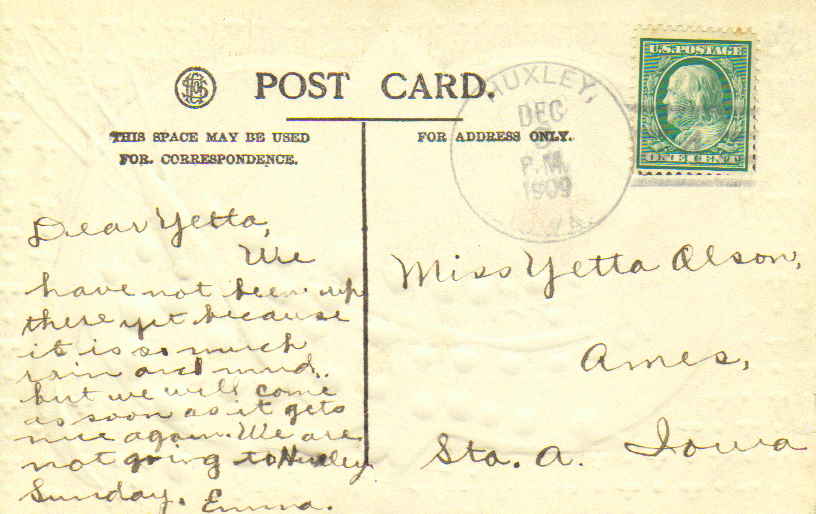 POST CARD.
THIS SPACE MAY BE USED
FOR CORRESPONDENCE.
FOR ADDRESS ONLY.
HUXLEY,
DEC
P.M.
1909
IOWA.
U.S. POSTAGE
ONE CENT
Dear Yetta,
We
have not been up
there yet because
it is so much
rain and mud.
but we will come
as soon as it gets
nice again. We are
not going to Huxley
Sunday. Emma.
Miss Yetta Olson,
Ames,
Sta. A. Iowa